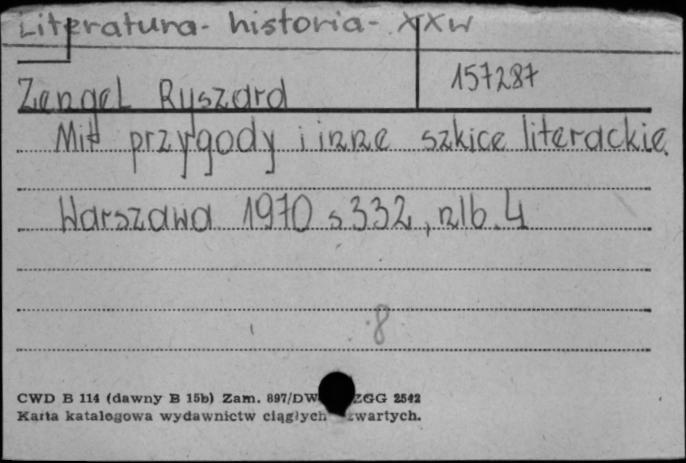 Literatura - historia - XXw
157287
Zengel Ryszard
Mit przygody i inne szkice literackie.
Warszawa 1970 s 332, nlb. 4
8
CWD B 114 (dawny B 15b) Zam. 897/DW ZGG 2542
Karta katalogowa wydawnictw ciągłych wartych.